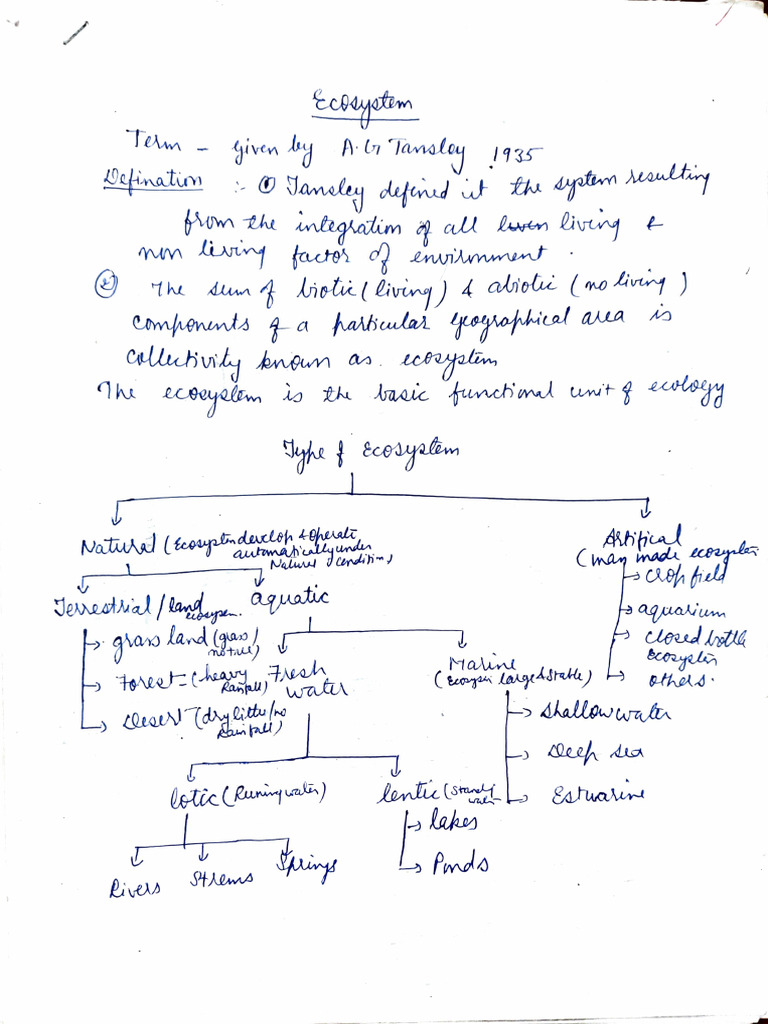 Ecosystem
Term - given by A.G Tansley 1935
Defination :- ① Tansley defined it the system resulting
from the integration of all living &
non living factor of environment.
② The sum of biotic (living) & abiotic (no living)
components of a particular geographical area is
collectivity known as. ecosystem
The ecosystem is the basic functional unit of ecology
Type of Ecosystem
Natural (Ecosystem develop & operate
automatically under
Natural conditions)
Artifical
(man made ecosystem
→ crop field
→ aquarium
→ closed bottle
ecosystem
→ others.
Terrestrial / land
ecosystem.
→ grass land (grass
→ Forest = (heavy
Rainfall)
→ Desert (dry little/no
Rainfall)
aquatic
Fresh
water
Marine
(Ecosystem large & stable)
→ Shallow water
→ Deep sea
→ Estuarine
lotic (Runing water)
lentic (Stand
water
→ lakes
→ Ponds
Rivers
Strems
Springs